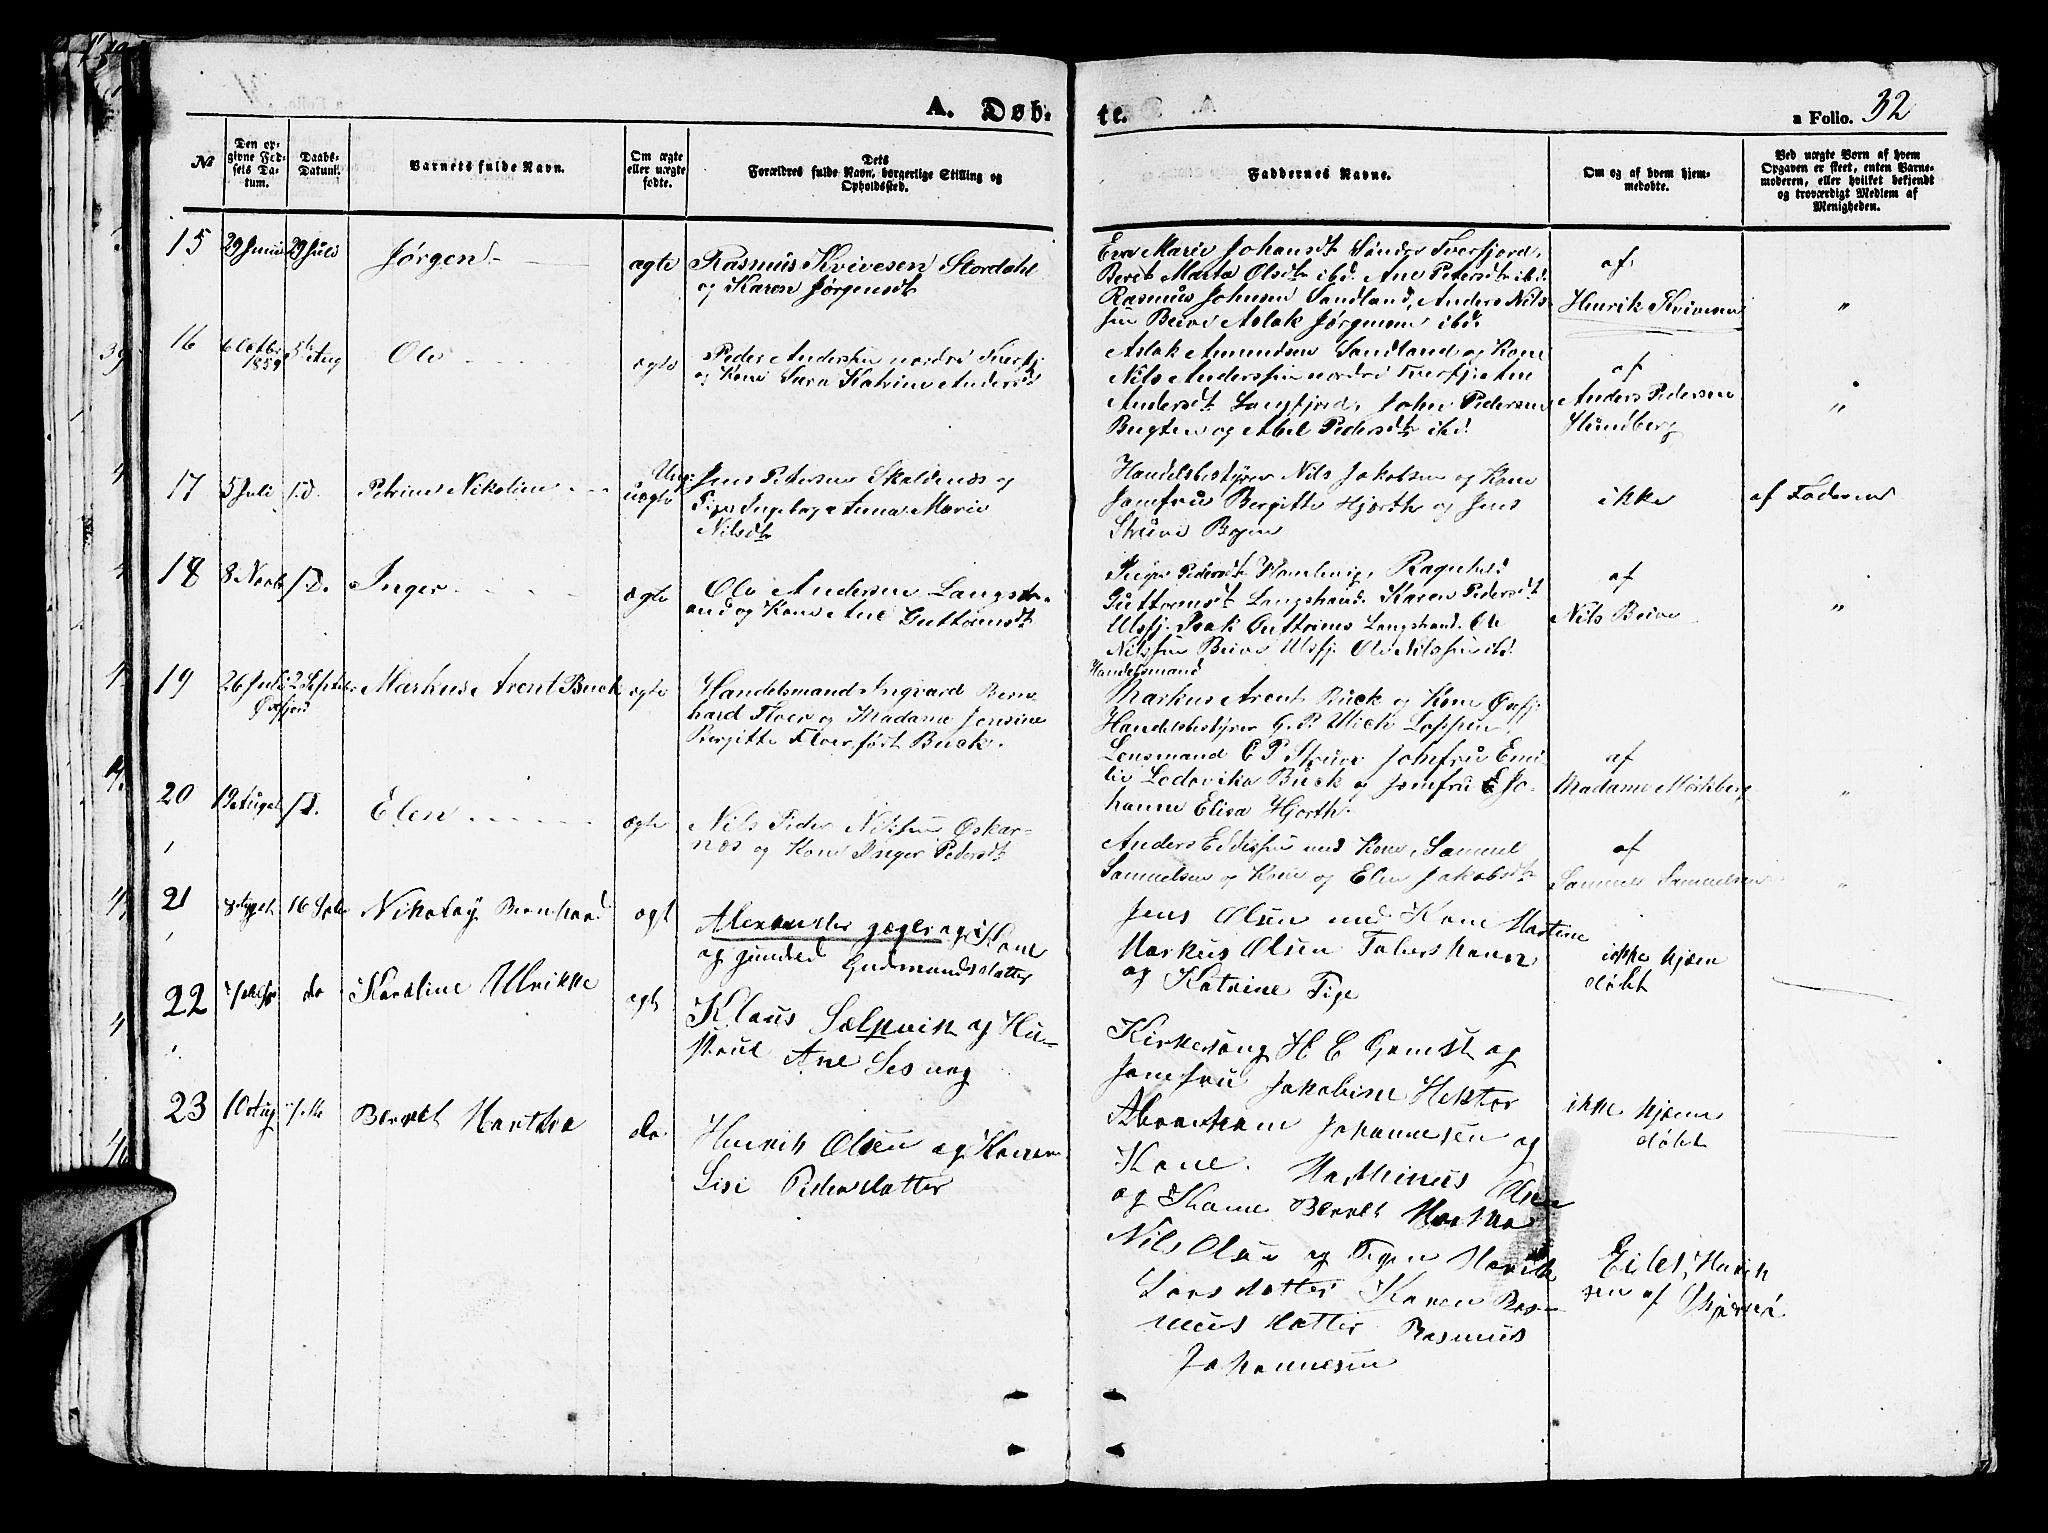 A. Døb-
te.
a Folio. 32
No
Den opgivne Fødsels Datum.
Daabs-Datum.
Barnets fulde Navn.
Om ægte eller uægte fødte.
Dets Forældres fulde Navn, borgerlige Stilling og Opholdssted.
Faddernes Navne.
Om og af hvem hjemmedøbte.
Ved uægte Børn af hvem Opgaven er skeet, enten Barnemoderen, eller hvilket bekjendt og troværdigt Medlem af Menigheden.
15 29 Juni 29 Juli Jørgen ægte
Rasmus Kvivesen Stordahl
og Karen Jørgensdt
Eva Marie Johansdt Søndre Tverfjord,
Berit Marta Olsdtr ibd. Ane Pedersdtr ibd.
Rasmus Johnsen Sandland, Anders Nils-
sen Beive Aslak Jørgensen ibd.
af
Henrik Kvivesen
"
16 6 Octbr 1859 5te Aug Ole ægte
Peder Andersen nordre Tverfj.
og Kone Sara Katrine Andersdt
Aslak Amundsen Sandland og Kone
Nils Andersen nordre Tverfj. Ane
Andersdt Langfjord, John Pedersen
Bugten og Abel Pedersdtr ibd.
af
Anders Pedersen
"
17 5 Juli Petrine Nikoline uægte
Ung: Jens Petersen Skaldenæs og
Pige Ingeborg Anna Marie
Nilsdtr
Handelsbestyrer Nils Jakobsen og Kone
Jomfru Bergitte Hjorth og Jens
Struve Bojen
ikke
af Faderen
18 8 Novb Inger ægte
Ole Andersen Langstr-
and og Kone Ane Guttormsdt
Ragnhild
Guttormsdt Langstrand. Karen Pedersdt
Ulsfj. Isak Guttorms Langstrand. Ole
Nilssen Beive Ulsfj. Ole Nilssen ibd.
af
Nils Beive
"
19 26 Juli 2 Septbr Øxfjord Markus Arent Buck ægte
Handelsmand Ingvard Bern-
hard Floer og Madame Jensine
Bergitte Floer født Buck.
Handelsmand
Markus Arent Buck og Kone Øxfj.
Handelsbestyrer G. P. Ulich Loppen,
Lensmand E P Struve Jomfru Emi-
lie Lodovika Buck og Jomfru Jo-
hanne Elisa Hjorth.
af
Madame Mørkberg
"
20 19 August Elen ægte
Nils Peder Nilsen Øskar-
næs og Kone Inger Pedersdt
Anders Eddesen med Kone, Samuel
Samuelsen og Kone og Elen Jakobsdtr
af
Samuel Samuelsen
"
21 16 Nikolay Bernhard ægt
Alexander og Kone
og Gudmundsdatter
Jens Olsen med Kone Martine
Markus Olsen
og Katrine Pige
ikke hjem
døbt
22 do Karoline Ulrikke ægt
Klaus Sælpvik og Hu-
strue Ane
Kirkesang H E Qvænst og
Jomfru Jakobine Hektor
23 10 Aug Berret Martha do
Henrik Olsen og Konen
Lisi Pedersdatter
Abraham Johannesen og
Kone. Marthinus Olsen
og Kone Berret Martha
Nils Olsen og Pigen
Larsdatter Karen Ras-
musdatter Rasmus
Johannesen
ikke hjeme
døbt